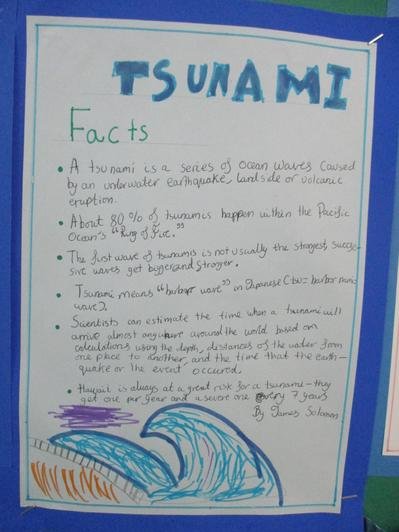 TSUNAMI
Facts
• A tsunami is a series of ocean waves caused
by an underwater earthquake, landslide or volcanic
eruption.
• About 80% of tsunamis happen within the Pacific
Ocean's "Ring of Fire."
• The first wave of tsunamis is not usually the strongest, succes-
sive waves get bigger and stronger.
• Tsunami means "harbour wave" in Japanese (tsu = harbor nami =
wave).
• Scientists can estimate the time when a tsunami will
arrive almost anywhere around the world based on
calculations using the depth, distances of the water from
one place to another, and the time that the earth-
quake or the event occured.
• Hawaii is always at a great risk for a tsunami - they
get one per year and a severe one every 7 years
By James Solomon